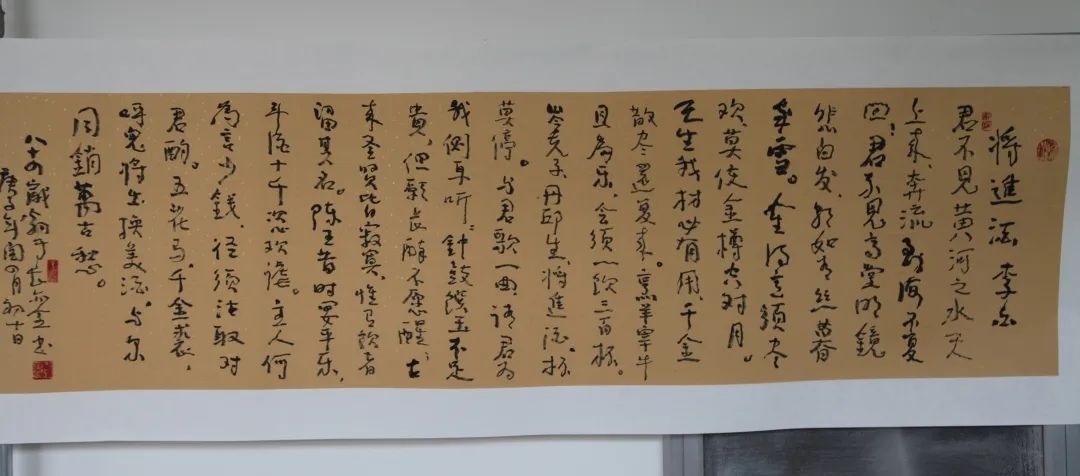 將進酒 李白
君不見黄河之水天
上来,奔流到海不复
回!君不見高堂明鏡
悲白发,朝如青丝暮
成雪。人生得意须尽
欢,莫使金樽空对月。
天生我材必有用,千金
散尽還复来。烹羊宰牛
且为乐,会须一饮三百杯。
岑夫子,丹邱生,將進酒,杯
莫停。与君歌一曲,请君为
我侧耳听:鐘鼓饌玉不足
贵,但願长醉不愿醒;古
来圣賢皆寂寞,惟有饮者
留其名。陈王昔时宴平乐,
斗酒十千恣欢谑。主人何
為言少钱,径须沽取对
君酌。五花马,千金裘,
呼兒將出換美酒,与尔
同銷萬古愁。
八十四歲翁于书
庚子年闰四月初十日